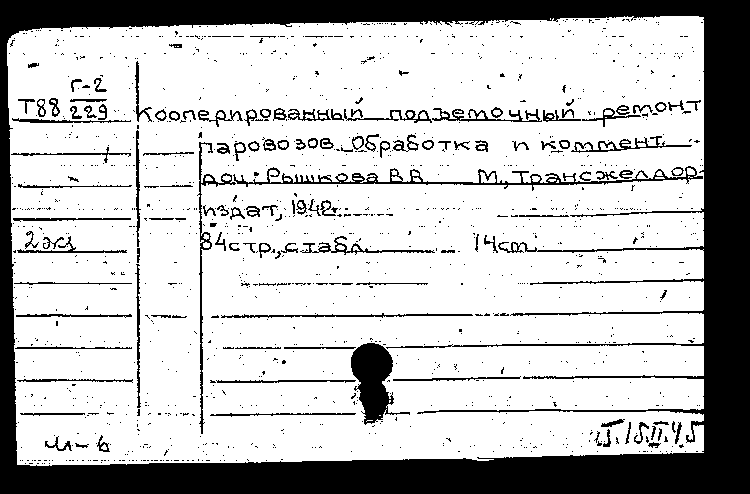 Г-2
Т88 229
Кооперированный подъемочный ремонт
паровозов. Обработка и коммент.
доц. Рышкова В.В. М., Трансжелдор-
издат, 1942.
2 экз 84 стр., с табл. 14 см.